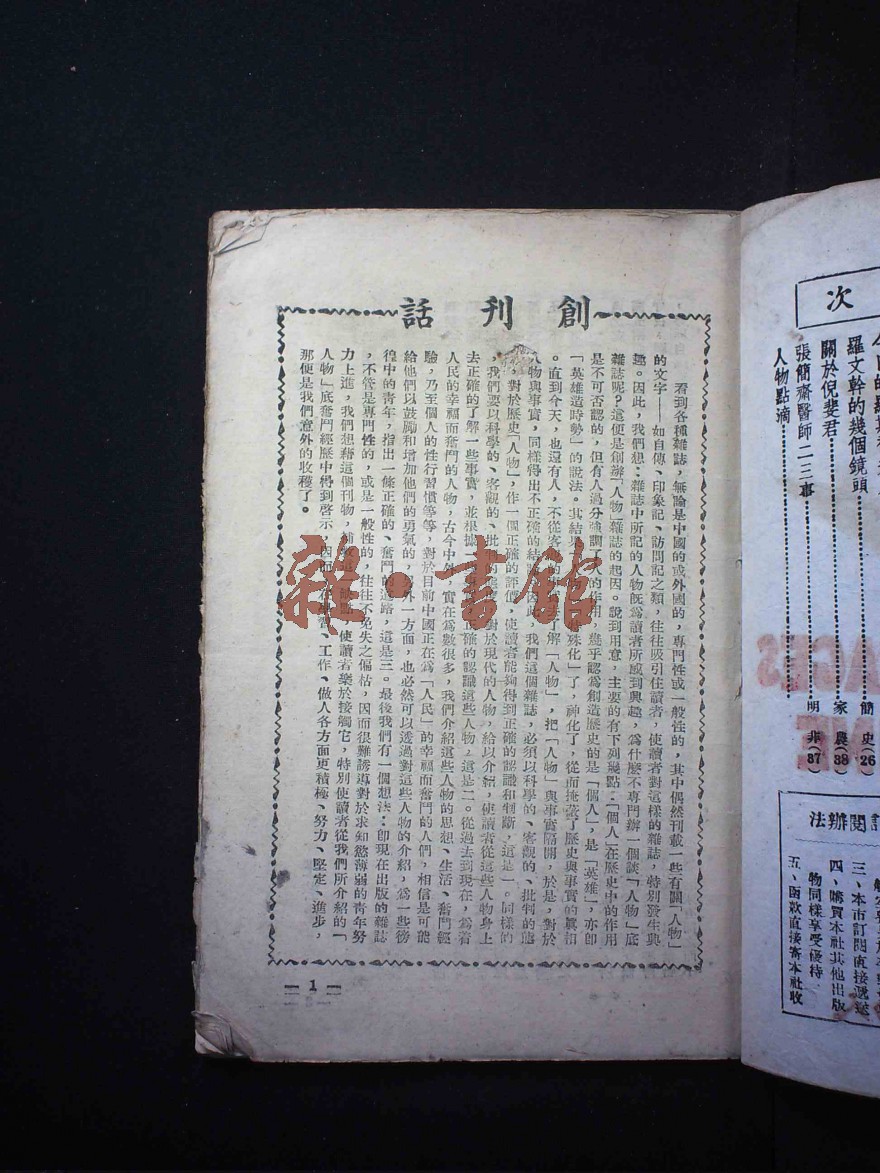 創刊話
看到各種雜誌，無論是中國的或外國的，專門性或一般性的，其中偶然刊載一些有關「人物」
的文字——如自傳、印象記、訪問記之類，往往吸引住讀者，使讀者對這樣的雜誌，特別發生興
趣。因此，我們想：雜誌中所記的人物既為讀者所感到興趣，為什麼不專門辦一個談「人物」底
雜誌呢？這便是創辦「人物」雜誌的起因。說到用意，主要的有下列幾點：「個人」在歷史中的作用
是不可否認的，但有人過分強調了 的作用，幾乎認為創造歷史的是「個人」，是「英雄」，亦即
「英雄造時勢」的說法。其結果 物 殊化」了，神化了，從而掩蓋了歷史與事實的真相
。直到今天，也還有人，不從客 去了解「人物」，把「人物」與事實隔開，於是，對於
人物與事實，同樣得出不正確的結 此，我們這個雜誌，必須以科學的、客觀的、批判的態
，對於歷史「人物」，作一個正確的評價，使讀者能夠得到正確的認識和判斷，這是一。同樣的
，我們要以科學的、客觀的、批 的態 對於現代的人物，給以介紹，使讀者從這些人物身上
去正確的了解一些事實，並根據 正確的認識這些人物，這是二。從過去到現在，為着
人民的幸福而奮鬥的人物，古今中外 實在為數很多，我們介紹這些人物的思想、生活、奮鬥經
驗，乃至個人的性行習慣等等，對於目前中國正在為「人民」的幸福而奮鬥的人們，相信是可能
給他們以鼓勵和增加他們的勇氣的，另外一方面，也必然可以透過對這些人物的介紹，為一些徬
徨中的青年，指出一條正確的、奮鬥的道路，這是三。最後我們有一個想法：即現在出版的雜誌
，不管是專門性的，或是一般性的，往往不免失之偏枯，因而很難誘導對於求知慾薄弱的青年努
力上進，我們想藉這個刊物，補救這 缺點 使讀者樂於接觸它，特別使讀者從我們所介紹的「
人物」底奮鬥經歷中得到啓示，因而 、工作、做人各方面更積極、努力、堅定、進步，
那便是我們意外的收穫了。
1
雜·書館
次
羅文幹的幾個鏡頭……簡 史(26
關於倪斐君……家 農(38)
張簡齋醫師二三事……明 非(37)
人物點滴
訂閱辦法
三、本市訂閱直接遞送
四、購買本社其他出版
物同樣享受優待
五、函款直接寄本社收